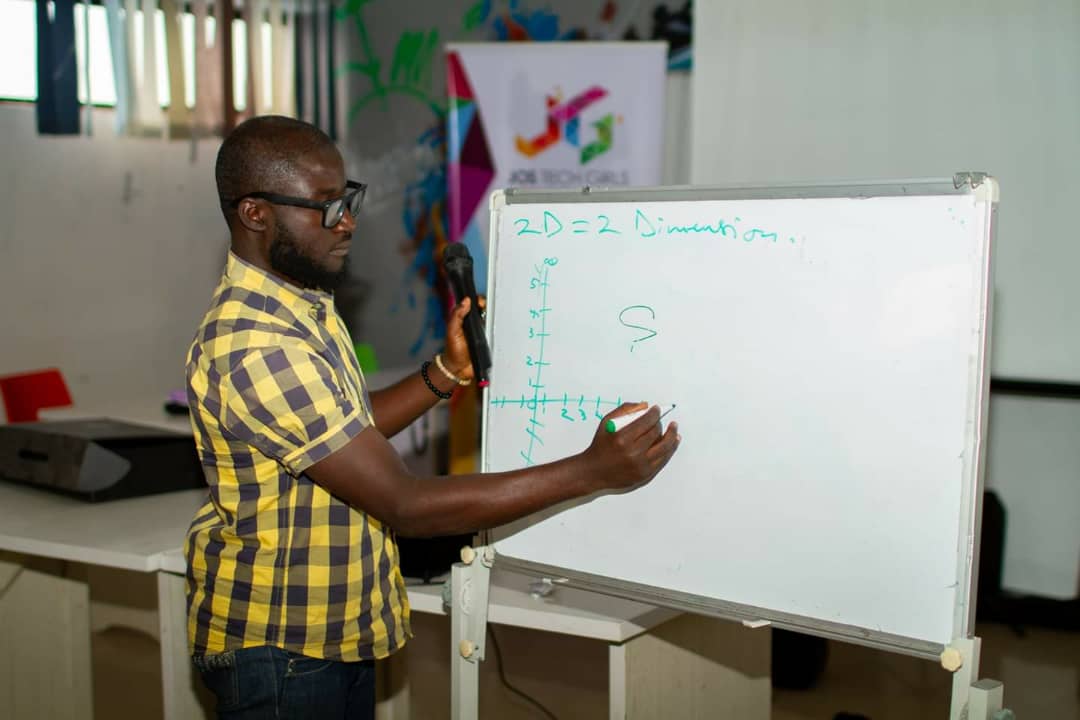 JTG
JOS TECH GIRLS
2D = 2 Dimension.
5
4
3
2
1
2 3 4
S